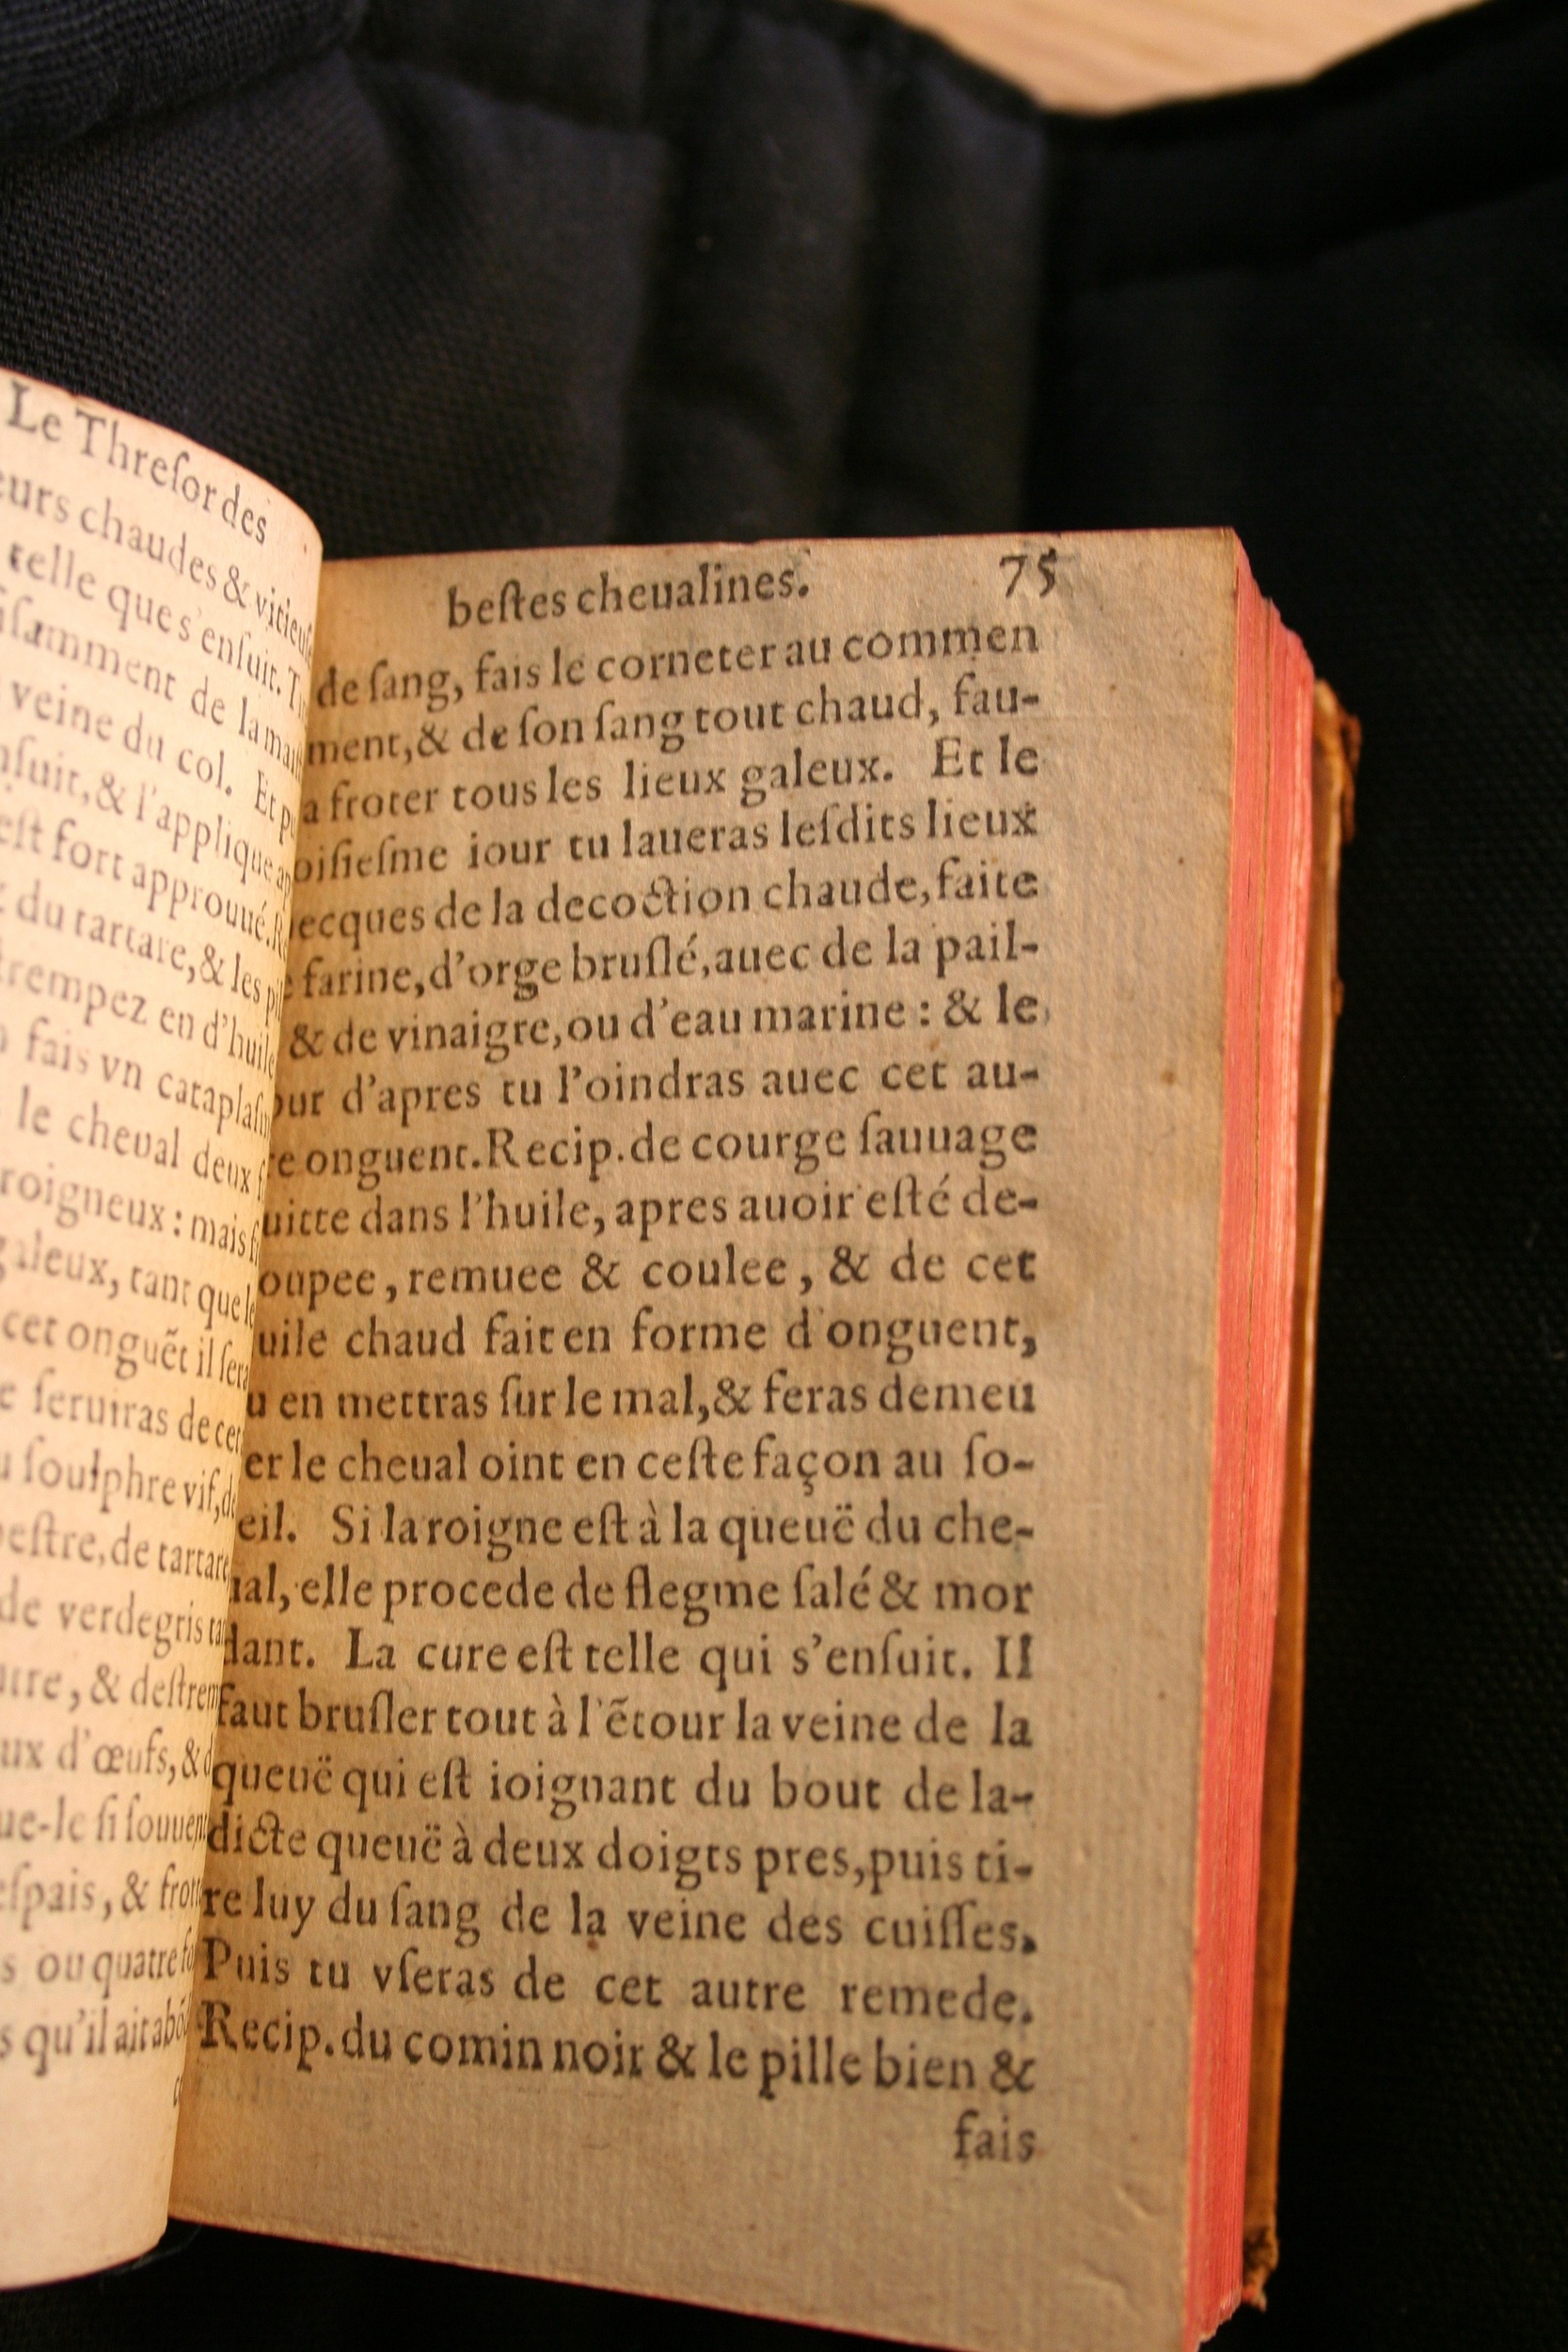 Le Threſor des
eurs chaudes & vitieuſ
telle que s'enſuit. T
iſamment de la mai
veine du col. Et p
nſuit, & l'applique ap
eſt fort approuué. R
du tartare, & les pil
trempez en d'huile
fais vn cataplaſm
le cheual deux f
roigneux : mais
galeux, tant que le
cet onguẽt il ſera
e ſeruiras de cet
u ſoulphre vif, d
peſtre, de tartare
de verdegris
utre, & deſtrem
ux d'œufs, & d
ue-le ſi ſouuent
eſpais, & frot
s ou quatre fo
s qu'il ait abõ
beſtes cheualines. 75
de ſang, fais le corneter au commen
ment, & de ſon ſang tout chaud, fau-
a froter tous les lieux galeux. Et le
oiſieſme iour tu laueras leſdits lieux
ecques de la decoction chaude, faite
e farine, d'orge bruſlé, auec de la pail-
& de vinaigre, ou d'eau marine : & le
our d'apres tu l'oindras auec cet au-
re onguent. Recip. de courge ſauuage
uitte dans l'huile, apres auoir eſté de-
oupee, remuee & coulee, & de cet
uile chaud fait en forme d'onguent,
u en mettras ſur le mal, & feras demeu
er le cheual oint en ceſte façon au ſo-
eil. Si la roigne eſt à la queuë du che-
ual, elle procede de flegme ſalé & mor
dant. La cure eſt telle qui s'enſuit. Il
faut bruſler tout à l'ẽtour la veine de la
queuë qui eſt ioignant du bout de la-
dicte queuë à deux doigts pres, puis ti-
re luy du ſang de la veine des cuiſſes.
Puis tu vſeras de cet autre remede.
Recip. du comin noir & le pille bien &
fais